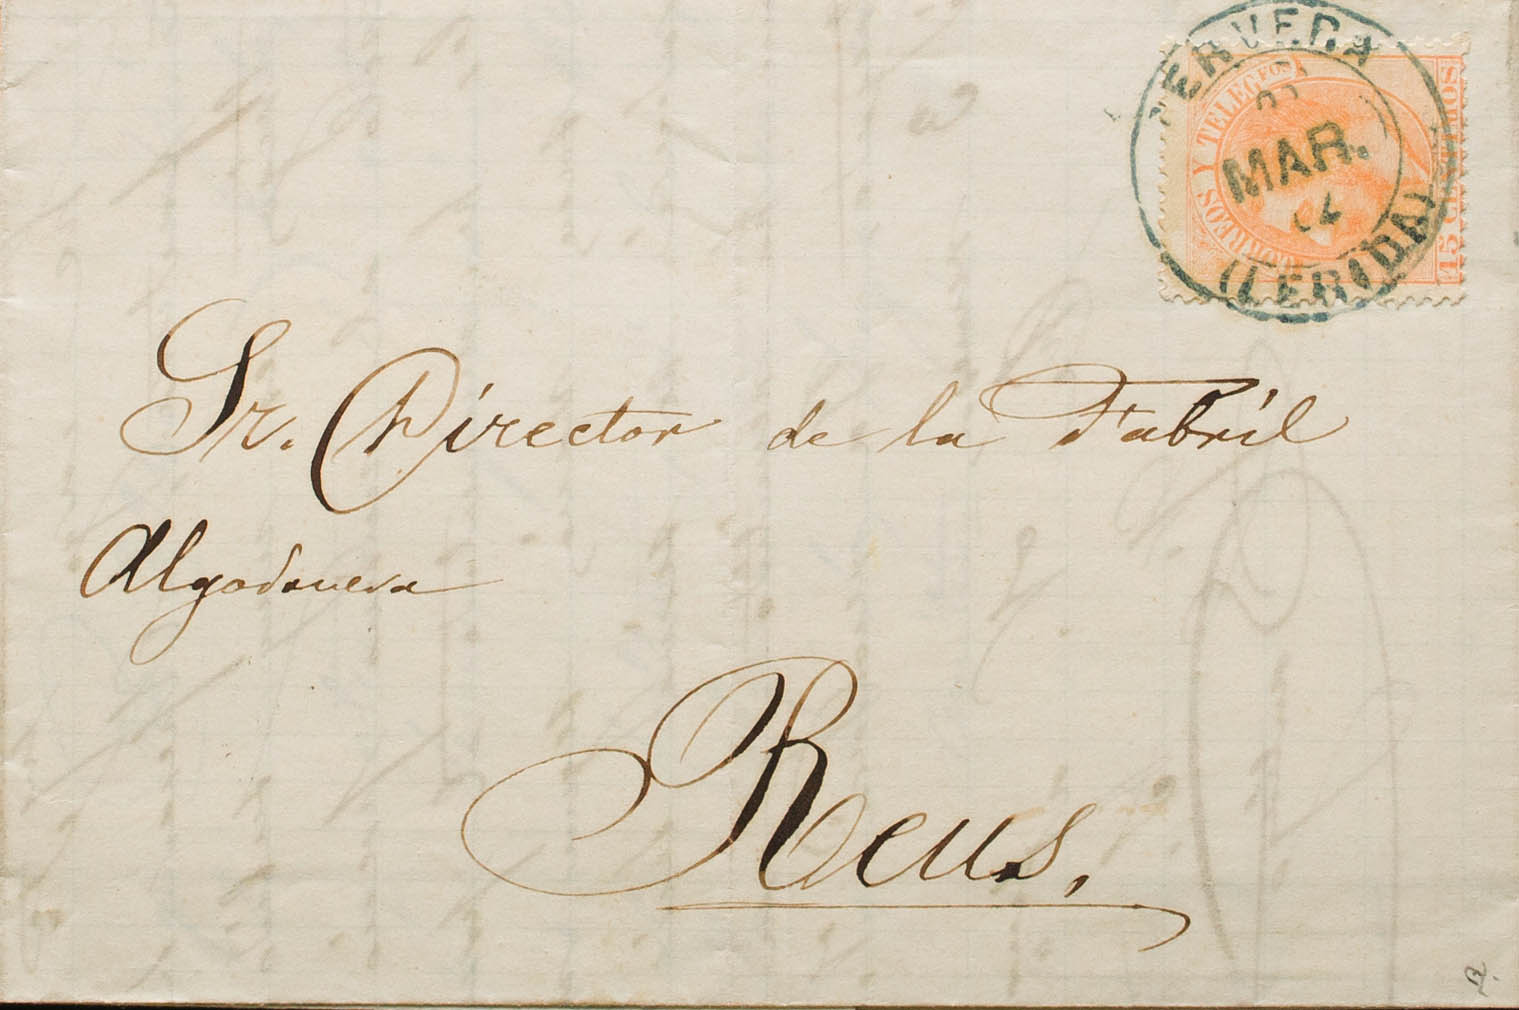 CERVERA
MAR.
(LERIDA)
CORREOS Y TELEGFOS
15 CENTIMOS
Sr. Director de la Fabril
Algodonera
Reus.